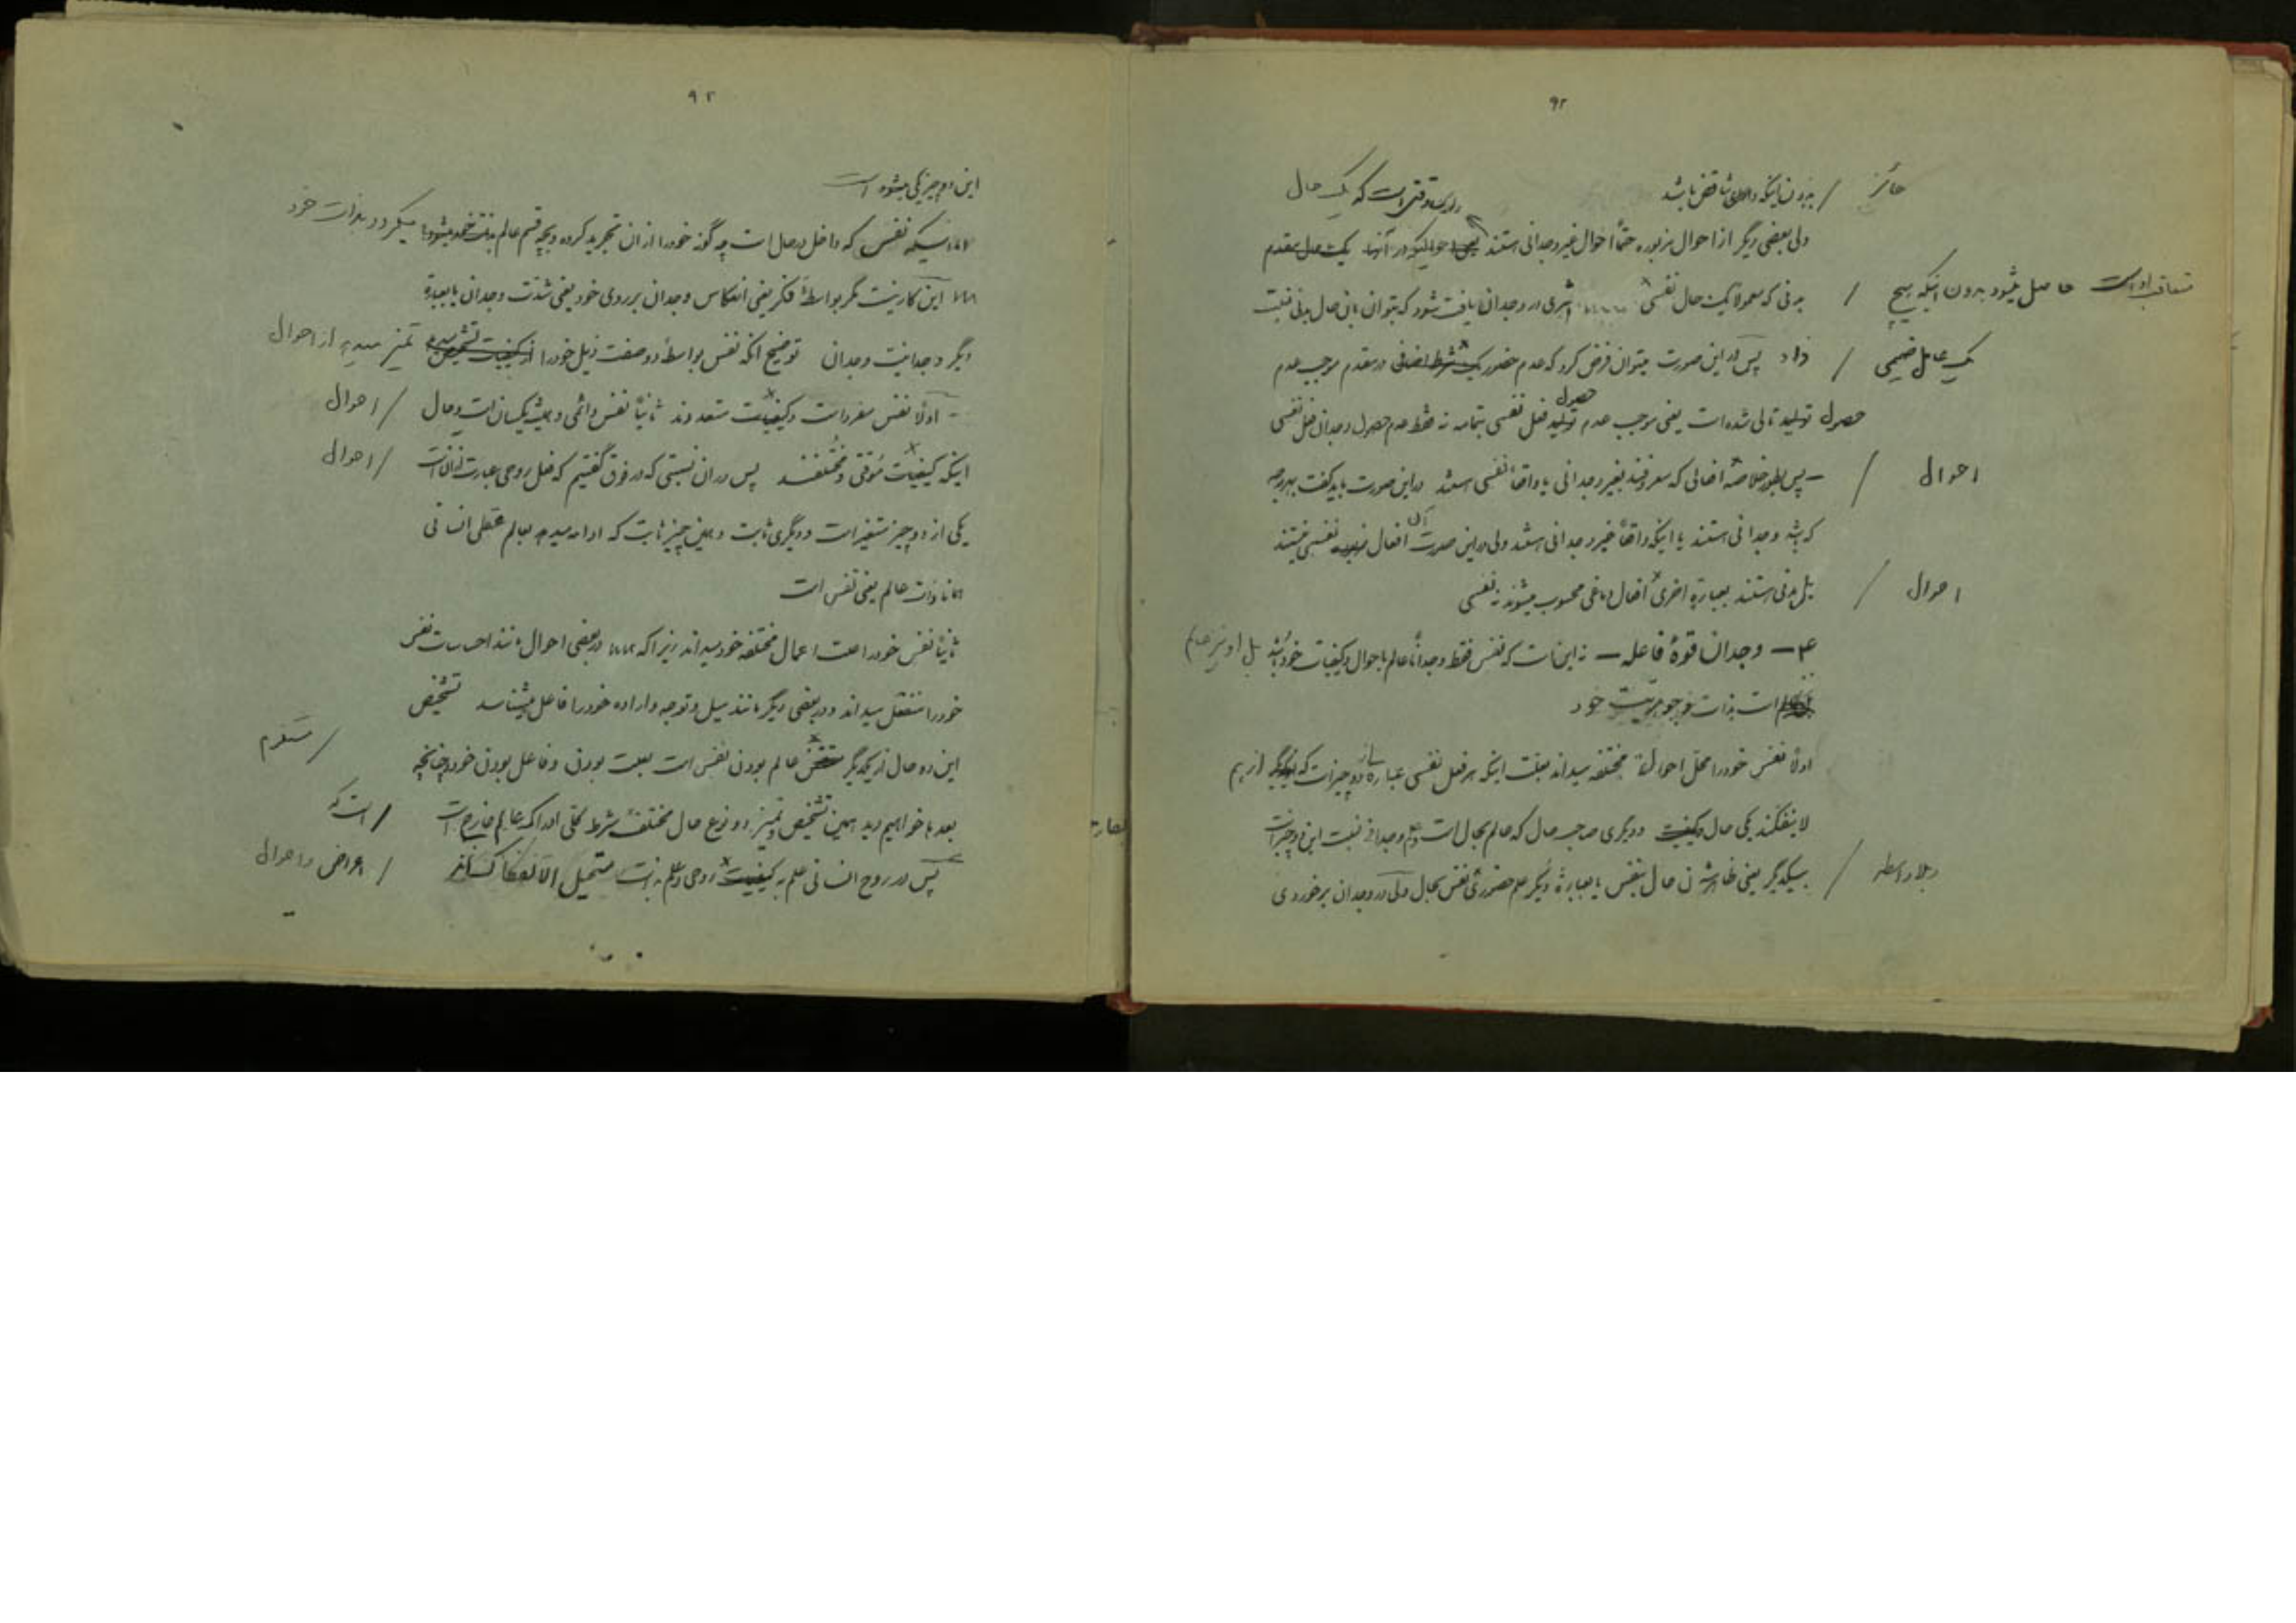 ۹۲
حائز / بدون اینکه دارای تناقض باشد
که یک حال
ولی بعضی دیگر از احوال مزبوره حتماً احوال غیر وجدانی هستند در آنها یک حال مقدم
حاصل میشود بدون اینکه هیچ / بدنی که معمولا یک حال نفسی اثری در وجدان یافت شود که بتوان بآن حال بدنی نسبت
یک عامل ضمیمی / داد پس در این صورت میتوان فرض کرد که عدم حضور یک شرط اضافی در مقدم موجب عدم
حصول تولید تالی شده است یعنی موجب عدم حصول تولید فعل نفسی بتمامه نه فقط عدم حصول وجدان فعل نفسی
احوال / – پس بطور خلاصه افعالی که معروفند بغیر وجدانی یا واقعاً نفسی هستند در این صورت باید گفت بهر درجه
که باشد وجدانی هستند یا اینکه واقعاً غیر وجدانی هستند ولی در این صورت آن افعال نفسی نیستند
احوال / بل بدنی هستند بعبارة اخری افعال دماغی محسوب میشوند نه نفسی
۴ – وجدان قوهٔ فاعله – نه اینست که نفس فقط وجداناً عالم باحوال و کیفیات خود باشد بل او نیز عالم
است بذات و جوهریت خود
اولاً نفس خود را محل احوال مختلفه میداند بعلت اینکه هر فعل نفسی عبارة از دو چیز است که از هم
لاینفکند یکی حال و کیفیت و دیگری صاحب حال که عالم بحال است و علم وجدانی نسبت این دو چیز است
بلا واسطه / بیکدیگر یعنی ظاهر شدن حال بنفس یا بعبارة دیگر علم حضوری نفس بحال ولی در وجدان برخوردی
۹۳
این دو چیز یکی میشود است
نفس که داخل در حال است چه گونه خود را از آن تجرید کرده و بچه قسم عالم بذات خود میشود میگردد بذات خود
این کار نیست مگر بواسطهٔ فکر یعنی انعکاس وجدان بر روی خود یعنی شدت وجدان یا بعبارة
دیگر وجدانیت وجدان توضیح آنکه نفس بواسطهٔ دو صفت ذیل خود را از کیفیت تشخیص میدهد تمیز میدهد از احوال
– اولاً نفس مفرد است و کیفیات متعددند ثانیاً نفس دائمی و همیشه یکسان است و حال / احوال
اینکه کیفیات موقتی و مختلفند پس در آن نسبتی که در فوق گفتیم که فعل روحی عبارت از آنست / احوال
یکی از دو چیز متغیر است و دیگری ثابت و همین چیز ثابت که ادامه میدهد بعالم عقلی انسانی
همانا ذات عالم یعنی نفس است
ثانیاً نفس خود را علت اعمال مختلفه خود میداند زیرا که در بعضی احوال مانند احساسات نفس
خود را منفعل میداند و در بعضی دیگر مانند میل و توجه و اراده خود را فاعل میشناسد تشخیص
این دو حال از یکدیگر عالم بودن نفس است بعلت بودن و فاعل بودن خود و چنانچه / مستلزم
بعدها خواهیم دید همین تشخیص و تمیز دو نوع حال مختلف شرط کلی ادراک عالم خارج است / است که
پس در روح انسانی علم به کیفیت روحی و علم بذات مستحیل الانفکاکند / اعراض و احوال